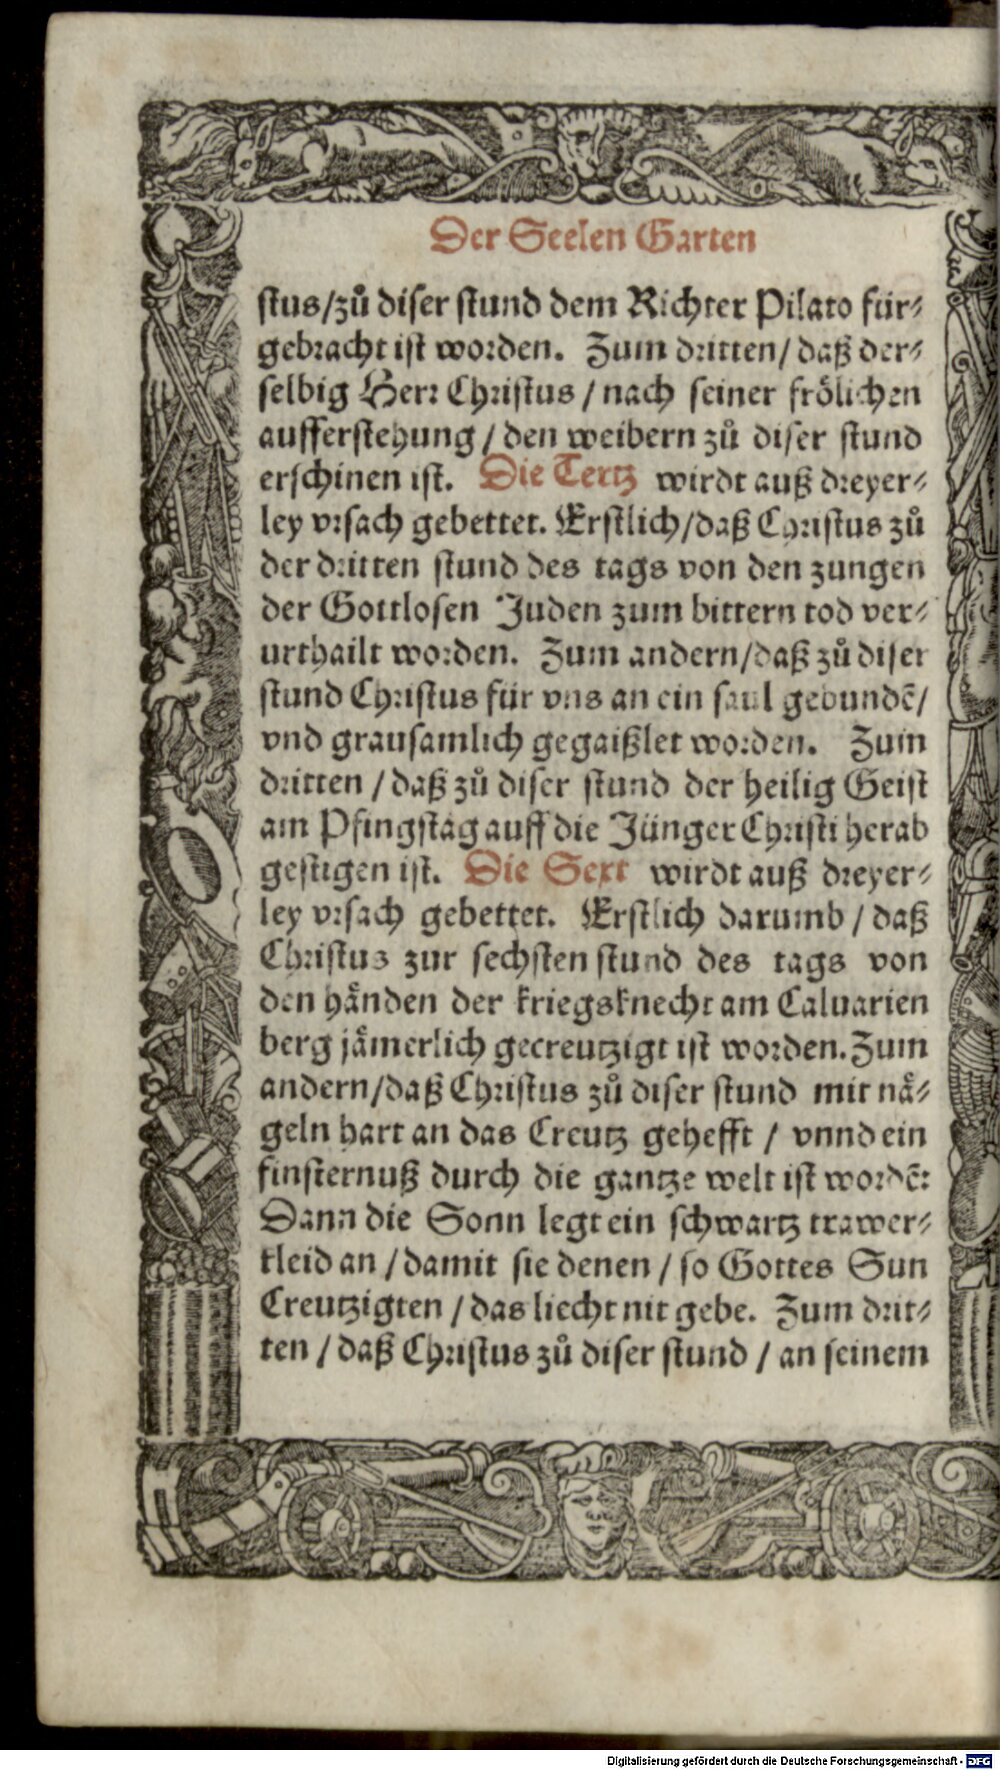 Der Seelen Garten
stus/zů diser stund dem Richter Pilato für⸗
gebracht ist worden. Zum dritten/ daß der⸗
selbig Herr Christus / nach seiner frölichen
aufferstehung / den weibern zů diser stund
erschinen ist. Die Tertz wirdt auß dreyer⸗
ley vrsach gebettet. Erstlich/daß Christus zů
der dritten stund des tags von den zungen
der Gottlosen Juden zum bittern tod ver⸗
urthailt worden. Zum andern/daß zů diser
stund Christus für vns an ein saul gebundẽ/
vnd grausamlich gegaißlet worden. Zum
dritten / daß zů diser stund der heilig Geist
am Pfingstag auff die Jünger Christi herab
gestigen ist. Die Sext wirdt auß dreyer⸗
ley vrsach gebettet. Erstlich darumb / daß
Christus zur sechsten stund des tags von
den hånden der kriegsknecht am Caluarien
berg jåmerlich gecreutzigt ist worden. Zum
andern/daß Christus zů diser stund mit nå⸗
geln hart an das Creutz gehefft / vnnd ein
finsternuß durch die gantze welt ist wordẽ:
Dann die Sonn legt ein schwartz trawer⸗
kleid an / damit sie denen / so Gottes Sun
Creutzigten / das liecht nit gebe. Zum drit⸗
ten / daß Christus zů diser stund / an seinem
Digitalisierung gefördert durch die Deutsche Forschungsgemeinschaft - DFG